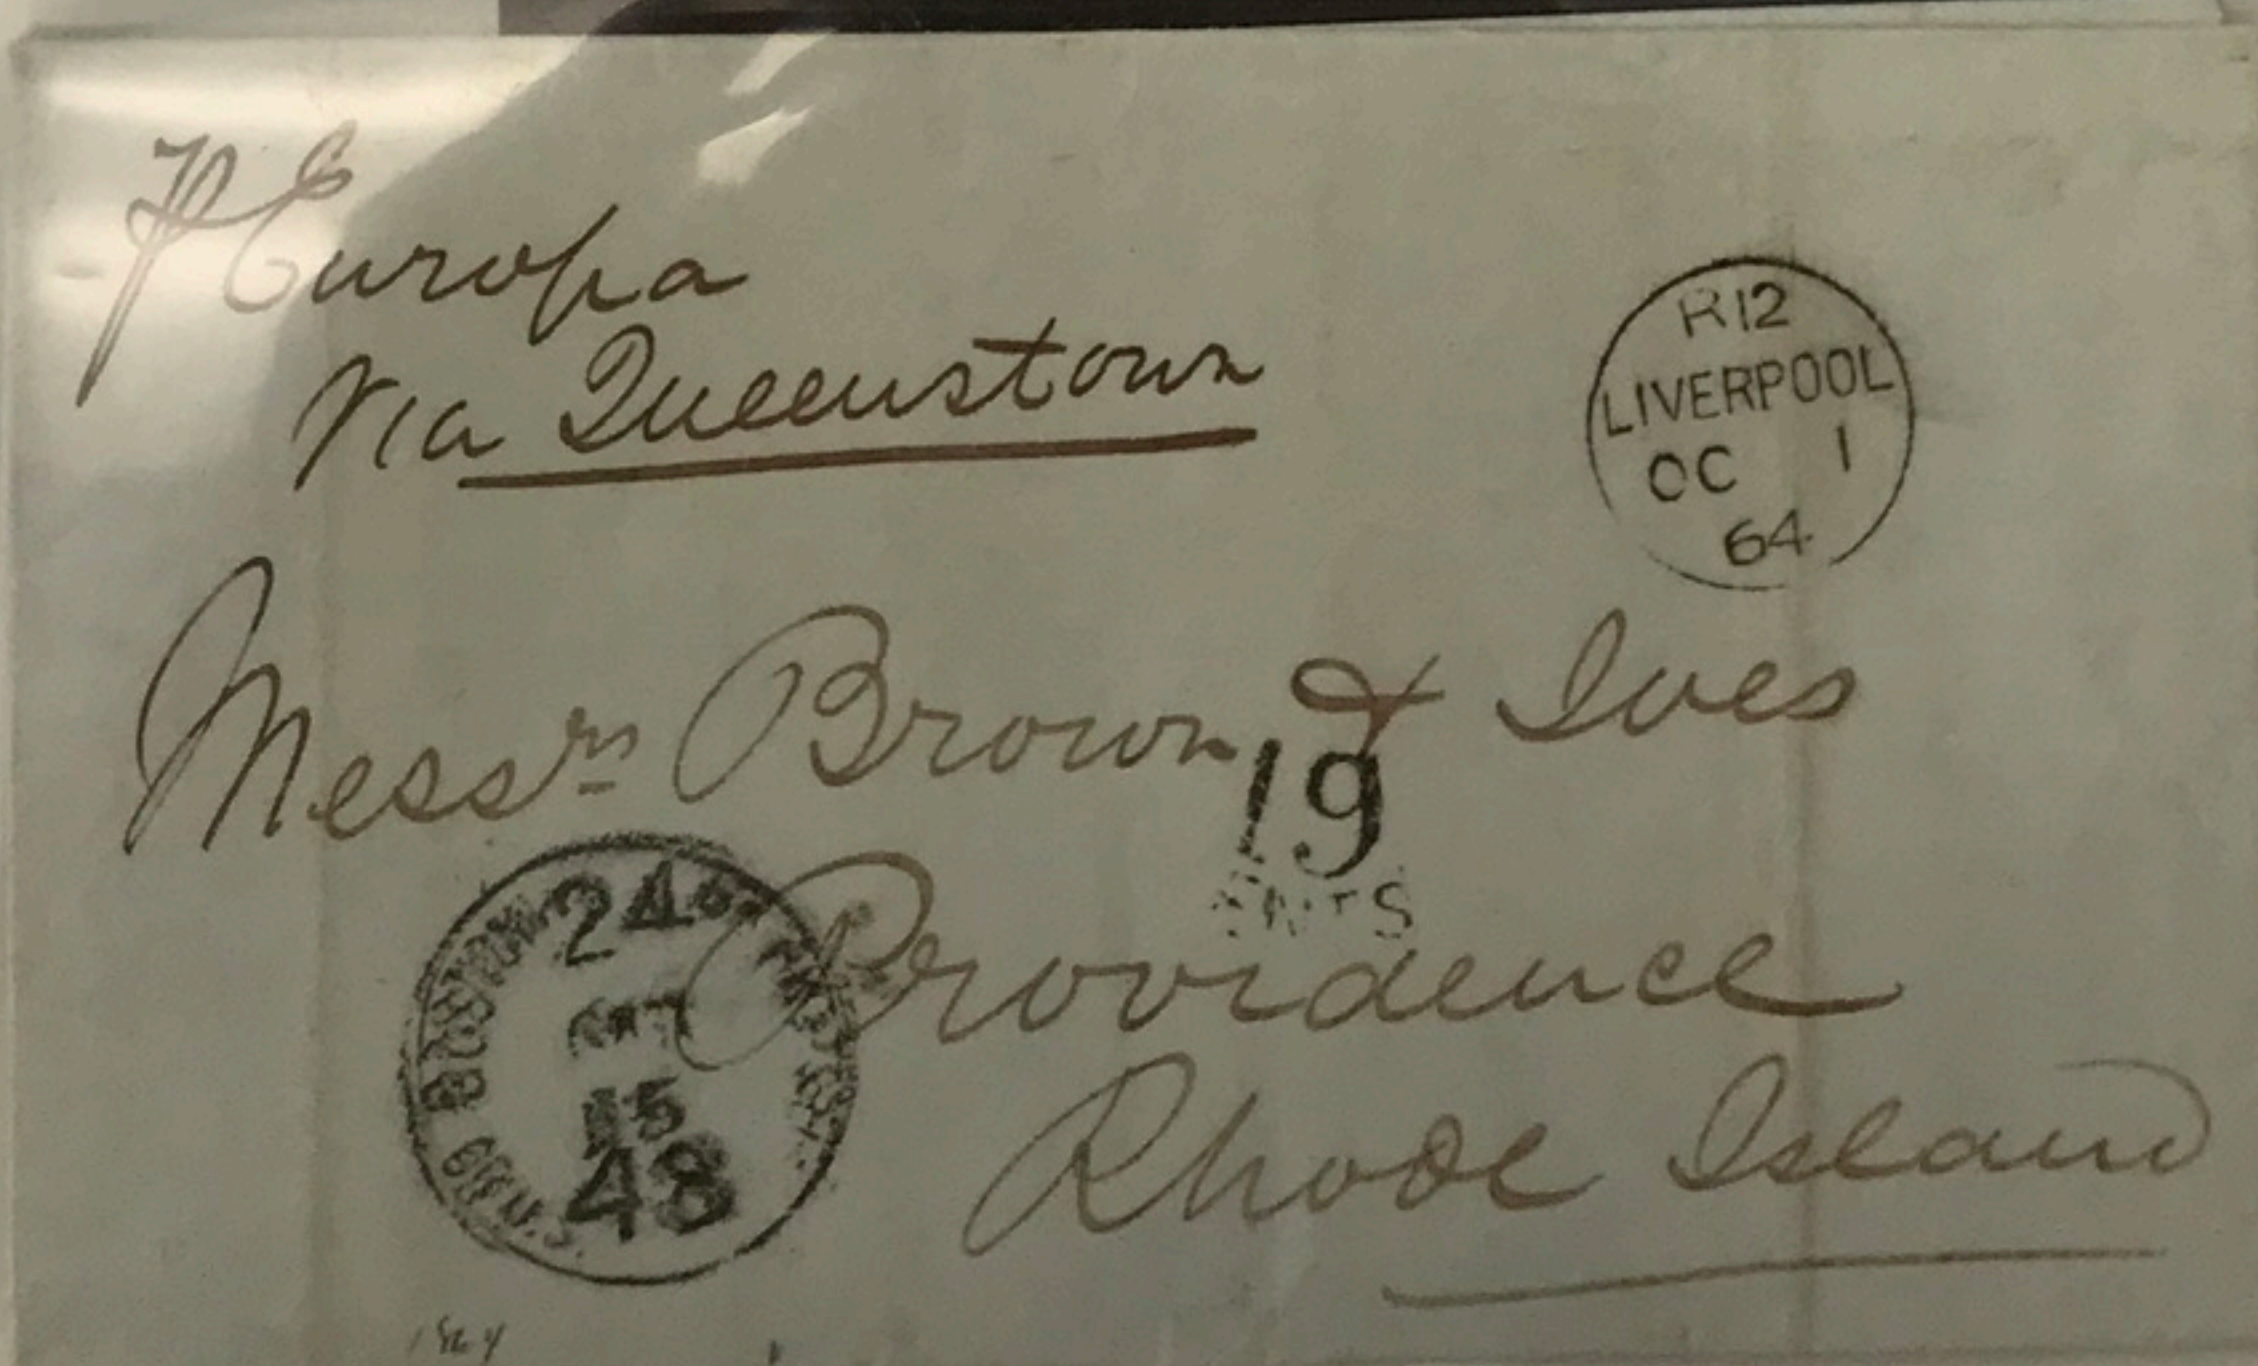 ℘ Europa
Via Queenstown
R12
LIVERPOOL
OC 1
64
Messrs Brown & Ives
19
CENTS
Providence
Rhode Island
24
OCT
15
48
1864